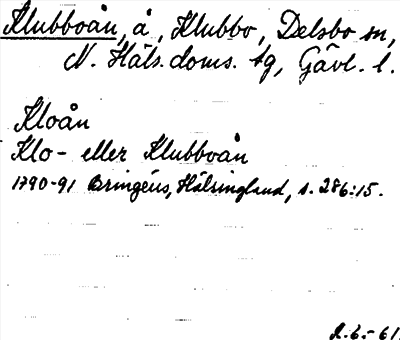 Klubboån, å, Klubbo, Delsbo sn,
N. Häls. doms. tg, Gävl. l.
Kloån
Klo- eller Klubboån
1790-91 Bringéus, Hälsingland, s. 286:15.